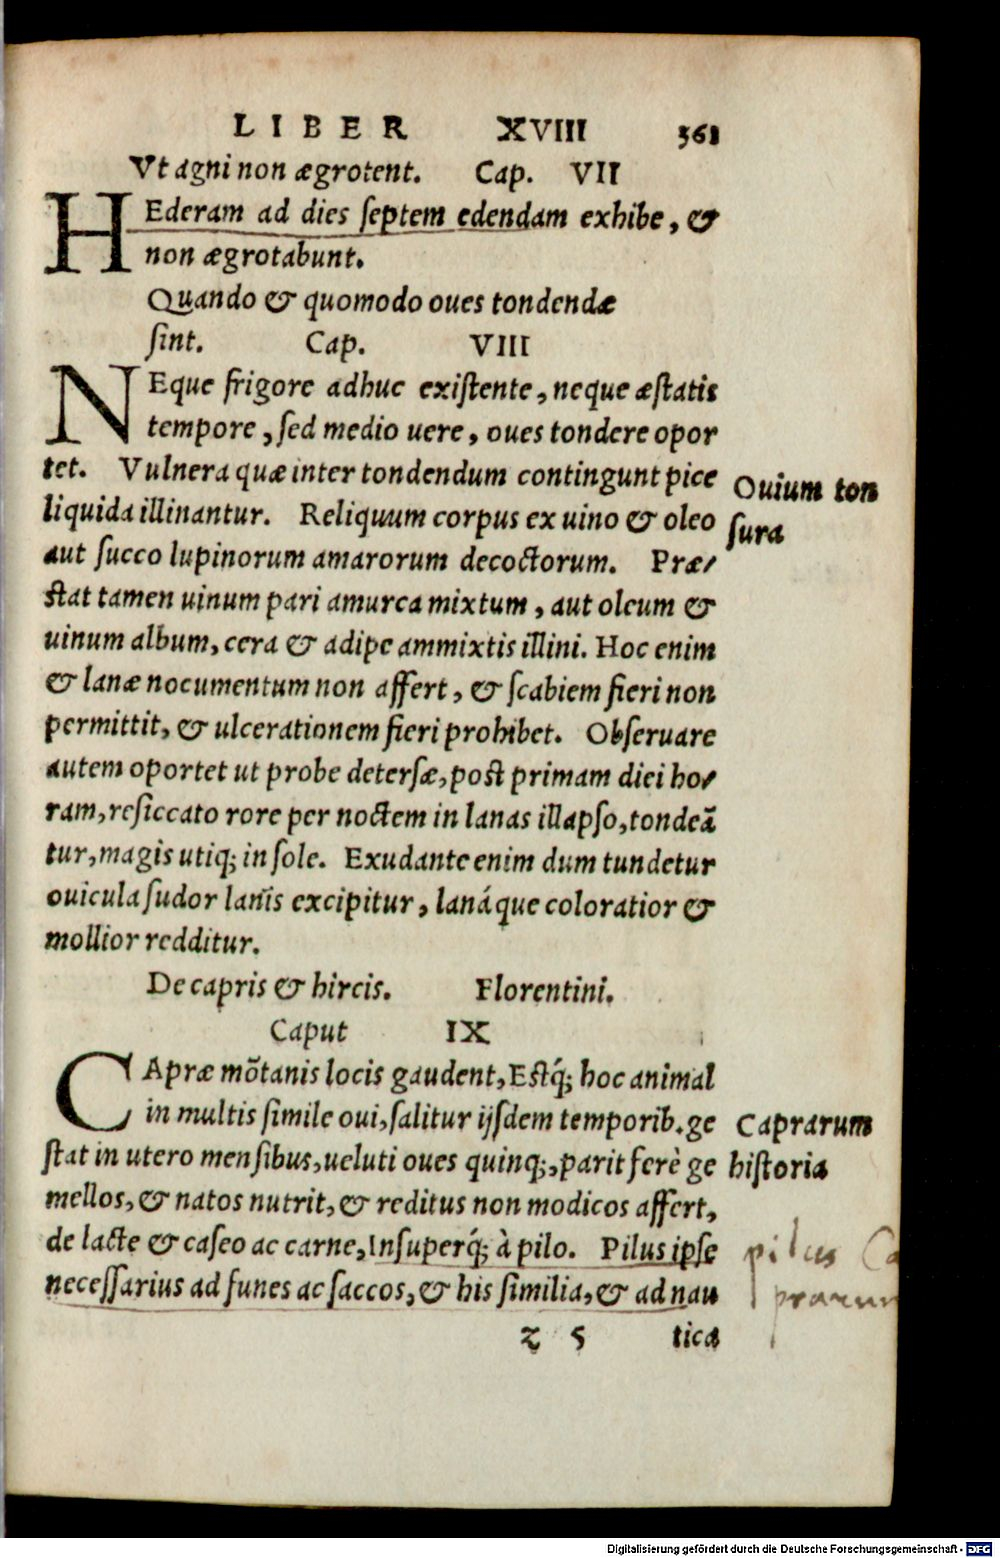 LIBER XVIII 361
Vt agni non ægrotent. Cap. VII
HEderam ad dies ſeptem edendam exhibe, &
non ægrotabunt.
Quando & quomodo oues tondendæ
ſint. Cap. VIII
NEque frigore adhuc exiſtente, neque æſtatis
tempore, ſed medio uere, oues tondere opor
tet. Vulnera quæ inter tondendum contingunt pice
liquida illinantur. Reliquum corpus ex uino & oleo
aut ſucco lupinorum amarorum decoctorum. Præ-
ſtat tamen uinum pari amurca mixtum, aut oleum &
uinum album, cera & adipe ammixtis illini. Hoc enim
& lanæ nocumentum non affert, & ſcabiem fieri non
permittit, & ulcerationem fieri prohibet. Obſeruare
autem oportet ut probe deterſæ, poſt primam diei ho-
ram, reſiccato rore per noctem in lanas illapſo, tondeã
tur, magis utiq; in ſole. Exudante enim dum tundetur
ouicula ſudor lanis excipitur, lanáque coloratior &
mollior redditur.
Ouium ton
ſura
De capris & hircis. Florentini.
Caput IX
CApræ mõtanis locis gaudent, Eſtq́; hoc animal
in multis ſimile oui, ſalitur ijſdem temporib. ge
ſtat in utero menſibus, ueluti oues quinq;, parit ferè ge
mellos, & natos nutrit, & reditus non modicos affert,
de lacte & caſeo ac carne, Inſuperq́; à pilo. Pilus ipſe
neceſſarius ad funes ac ſaccos, & his ſimilia, & ad nau
Caprarum
hiſtoria
pilus Ca
prarum
z 5 tica
Digitalisierung gefördert durch die Deutsche Forschungsgemeinschaft - DFG